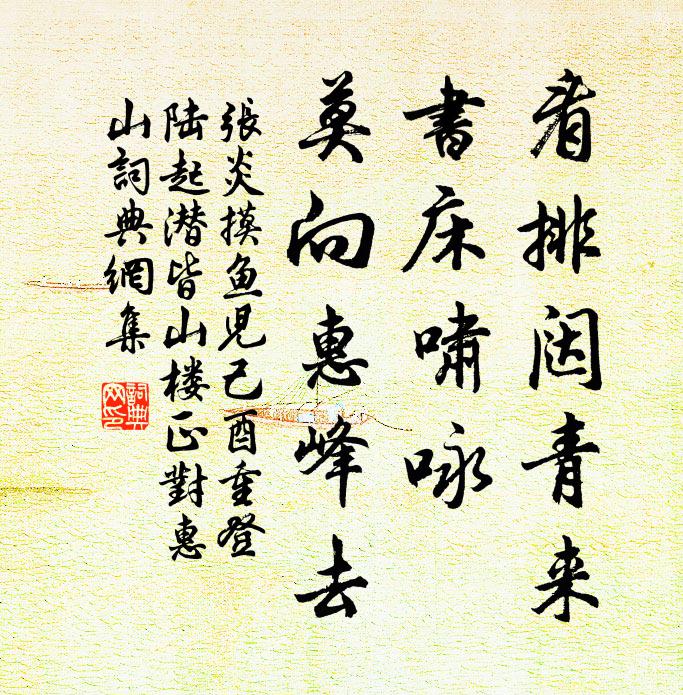 看排闼青来
書床嘯咏
莫向惠峰去
張炎摸鱼児己酉重登
陆起潜皆山楼正對惠
山詞典網集
詞典网印